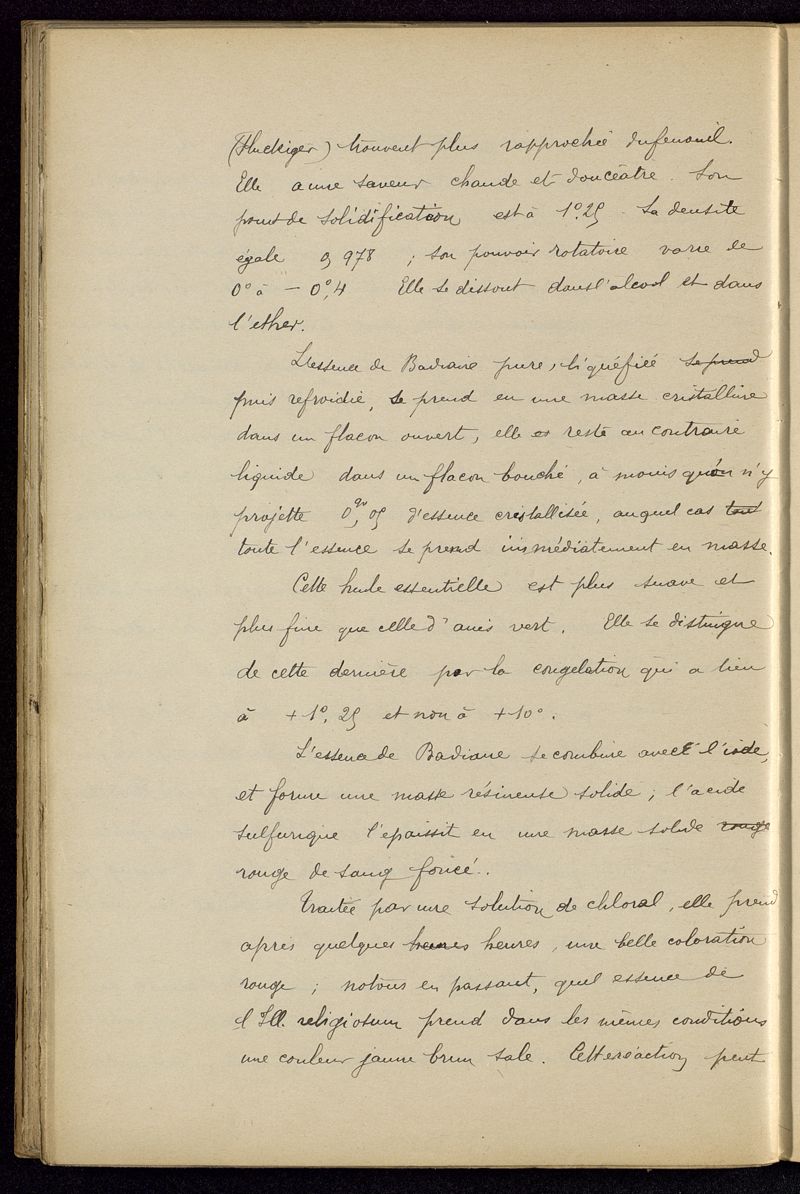 (Fluckiger) trouvent plus rapprochée du fenouil.
Elle a une saveur chaude et douceâtre. Son
point de solidification est à 1°.25. Sa densité
égale 0,978 ; son pouvoir rotatoire varie de
0° à - 0°,4 Elle se dissout dans l'alcool et dans
l'ether.
L'essence de Badiane pure, liquéfiée se prend
puis refroidie, se prend en une masse cristalline
dans un flacon ouvert, elle reste au contraire
liquide dans un flacon bouché, à moins qu'on n'y
projette 0,gr05 d'essence cristallisée, auquel cas tout
toute l'essence se prend immédiatement en masse.
Cette huile essentielle est plus suave et
plus fine que celle d'anis vert. Elle se distingue
de cette dernière par la congelation qui a lieu
à +1°,25 et non à +10°.
L'essence de Badiane se combine avec l'iode,
et forme une masse résineuse solide ; l'acide
sulfurique l'epaissit en une masse solide rouge
rouge de sang foncé.
Traitée par une solution de chloral, elle prend
après quelques heures heures, une belle coloration
rouge ; notons en passant, que l'essence de
l'Ill. religiosum prend dans les mêmes conditions
une couleur jaune brun sale. Cette réaction peut